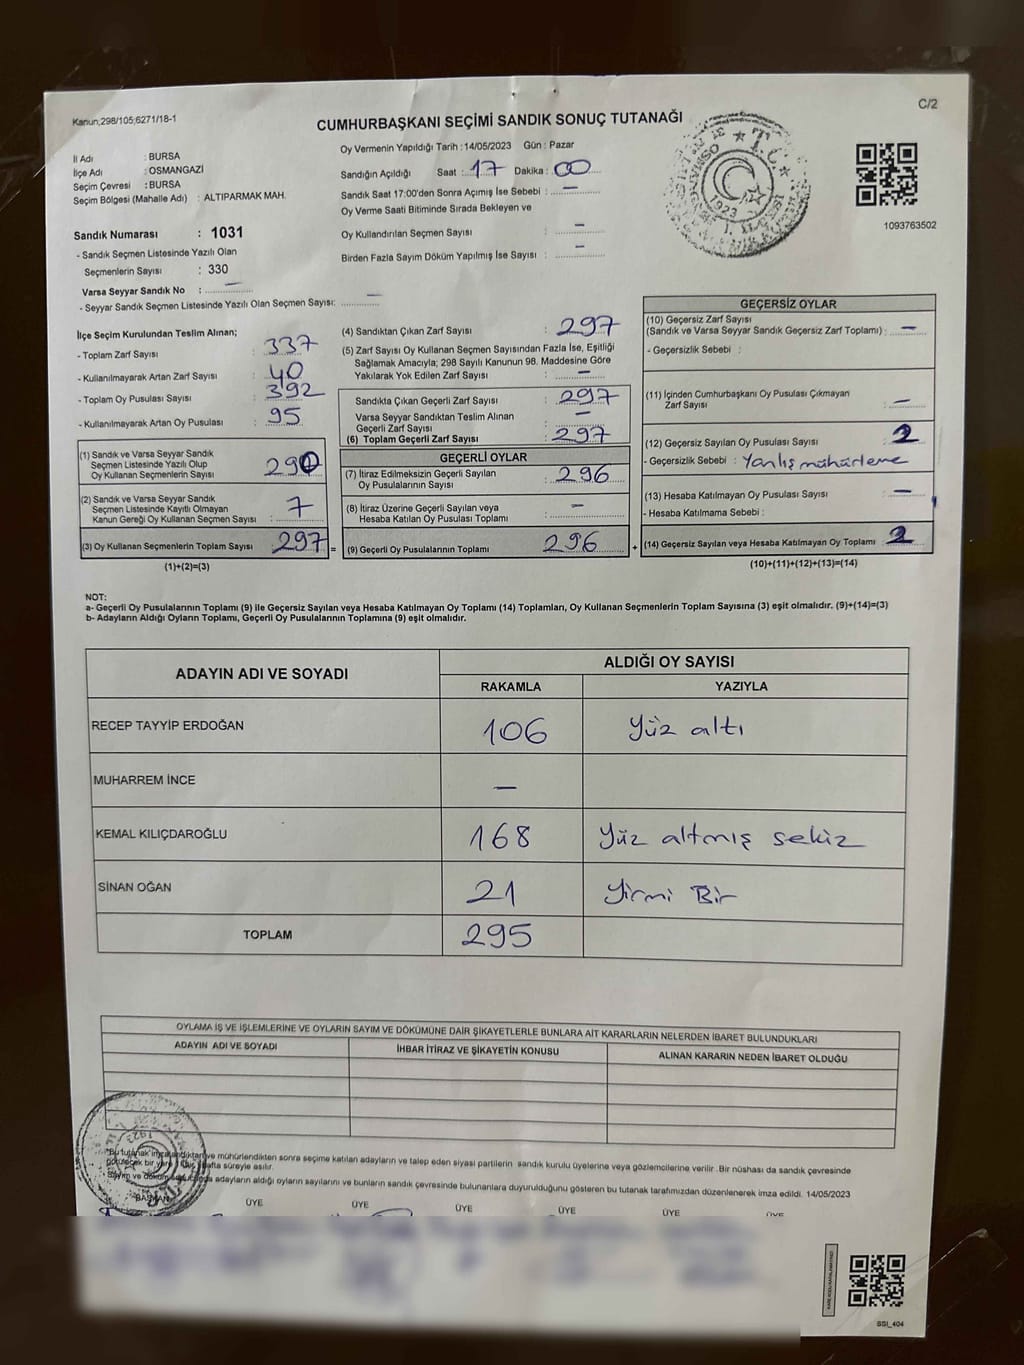 C/2
Kanun;298/105;6271/18-1
CUMHURBAŞKANI SEÇİMİ SANDIK SONUÇ TUTANAĞI
İl Adı : BURSA
İlçe Adı : OSMANGAZİ
Seçim Çevresi : BURSA
Seçim Bölgesi (Mahalle Adı) : ALTIPARMAK MAH.
Sandık Numarası : 1031
- Sandık Seçmen Listesinde Yazılı Olan
Seçmenlerin Sayısı : 330
Varsa Seyyar Sandık No : –
- Seyyar Sandık Seçmen Listesinde Yazılı Olan Seçmen Sayısı: –
Oy Vermenin Yapıldığı Tarih :14/05/2023 Gün : Pazar
Sandığın Açıldığı Saat : 17 Dakika : 00
Sandık Saat 17:00'den Sonra Açımış İse Sebebi : –
Oy Verme Saati Bitiminde Sırada Bekleyen ve
Oy Kullandırılan Seçmen Sayısı : –
Birden Fazla Sayım Döküm Yapılmış İse Sayısı : –
T.C.
1923
1093763502
İlçe Seçim Kurulundan Teslim Alınan;
- Toplam Zarf Sayısı : 337
- Kullanılmayarak Artan Zarf Sayısı : 40
- Toplam Oy Pusulası Sayısı : 392
- Kullanılmayarak Artan Oy Pusulası : 95
(1) Sandık ve Varsa Seyyar Sandık
Seçmen Listesinde Yazılı Olup
Oy Kullanan Seçmenlerin Sayısı : 290
(2) Sandık ve Varsa Seyyar Sandık
Seçmen Listesinde Kayıtlı Olmayan
Kanun Gereği Oy Kullanan Seçmen Sayısı : 7
(3) Oy Kullanan Seçmenlerin Toplam Sayısı : 297 =
(1)+(2)=(3)
(4) Sandıktan Çıkan Zarf Sayısı : 297
(5) Zarf Sayısı Oy Kullanan Seçmen Sayısından Fazla İse, Eşitliği
Sağlamak Amacıyla; 298 Sayılı Kanunun 98. Maddesine Göre
Yakılarak Yok Edilen Zarf Sayısı : –
Sandıkta Çıkan Geçerli Zarf Sayısı : 297
Varsa Seyyar Sandıktan Teslim Alınan
Geçerli Zarf Sayısı : –
(6) Toplam Geçerli Zarf Sayısı : 297
GEÇERLİ OYLAR
(7) İtiraz Edilmeksizin Geçerli Sayılan
Oy Pusulalarının Sayısı : 296
(8) İtiraz Üzerine Geçerli Sayılan veya
Hesaba Katılan Oy Pusulaları Toplamı : –
(9) Geçerli Oy Pusulalarının Toplamı : 296 +
GEÇERSİZ OYLAR
(10) Geçersiz Zarf Sayısı
(Sandık ve Varsa Seyyar Sandık Geçersiz Zarf Toplamı) : –
- Geçersizlik Sebebi :
(11) İçinden Cumhurbaşkanı Oy Pusulası Çıkmayan
Zarf Sayısı : –
(12) Geçersiz Sayılan Oy Pusulası Sayısı : 2
- Geçersizlik Sebebi : Yanlış mühürleme
(13) Hesaba Katılmayan Oy Pusulası Sayısı : –
- Hesaba Katılmama Sebebi :
(14) Geçersiz Sayılan veya Hesaba Katılmayan Oy Toplamı : 2
(10)+(11)+(12)+(13)=(14)
NOT:
a- Geçerli Oy Pusulalarının Toplamı (9) ile Geçersiz Sayılan veya Hesaba Katılmayan Oy Toplamı (14) Toplamları, Oy Kullanan Seçmenlerin Toplam Sayısına (3) eşit olmalıdır. (9)+(14)=(3)
b- Adayların Aldığı Oyların Toplamı, Geçerli Oy Pusulalarının Toplamına (9) eşit olmalıdır.
ADAYIN ADI VE SOYADI ALDIĞI OY SAYISI
RAKAMLA YAZIYLA
RECEP TAYYİP ERDOĞAN 106 Yüz altı
MUHARREM İNCE –
KEMAL KILIÇDAROĞLU 168 Yüz altmış sekiz
SİNAN OĞAN 21 Yirmi Bir
TOPLAM 295
OYLAMA İŞ VE İŞLEMLERİNE VE OYLARIN SAYIM VE DÖKÜMÜNE DAİR ŞİKAYETLERLE BUNLARA AİT KARARLARIN NELERDEN İBARET BULUNDUKLARI
ADAYIN ADI VE SOYADI İHBAR İTİRAZ VE ŞİKAYETİN KONUSU ALINAN KARARIN NEDEN İBARET OLDUĞU
ve mühürlendikten sonra seçime katılan adayların ve talep eden siyasi partilerin sandık kurulu üyelerine veya gözlemcilerine verilir .Bir nüshası da sandık çevresinde
hafta süreyle asılır.
adayların aldığı oyların sayılarını ve bunların sandık çevresinde bulunanlara duyurulduğunu gösteren bu tutanak tarafımızdan düzenlenerek imza edildi. 14/05/2023
BAŞKAN ÜYE ÜYE ÜYE ÜYE ÜYE ÜYE
SSI_404